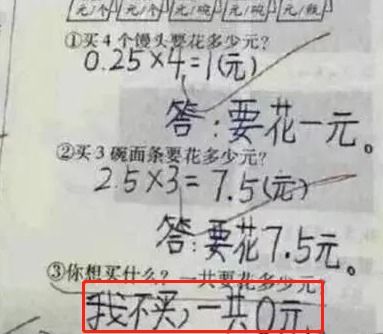 元/个 元/个 元/碗 元/碗 元/瓶
①买4个馒头要花多少元?
0.25×4=1(元)
答:要花一元。
②买3碗面条要花多少元?
2.5×3=7.5(元)
答:要花7.5元。
③你想买什么?一共要花多少元
我不买,一共0元